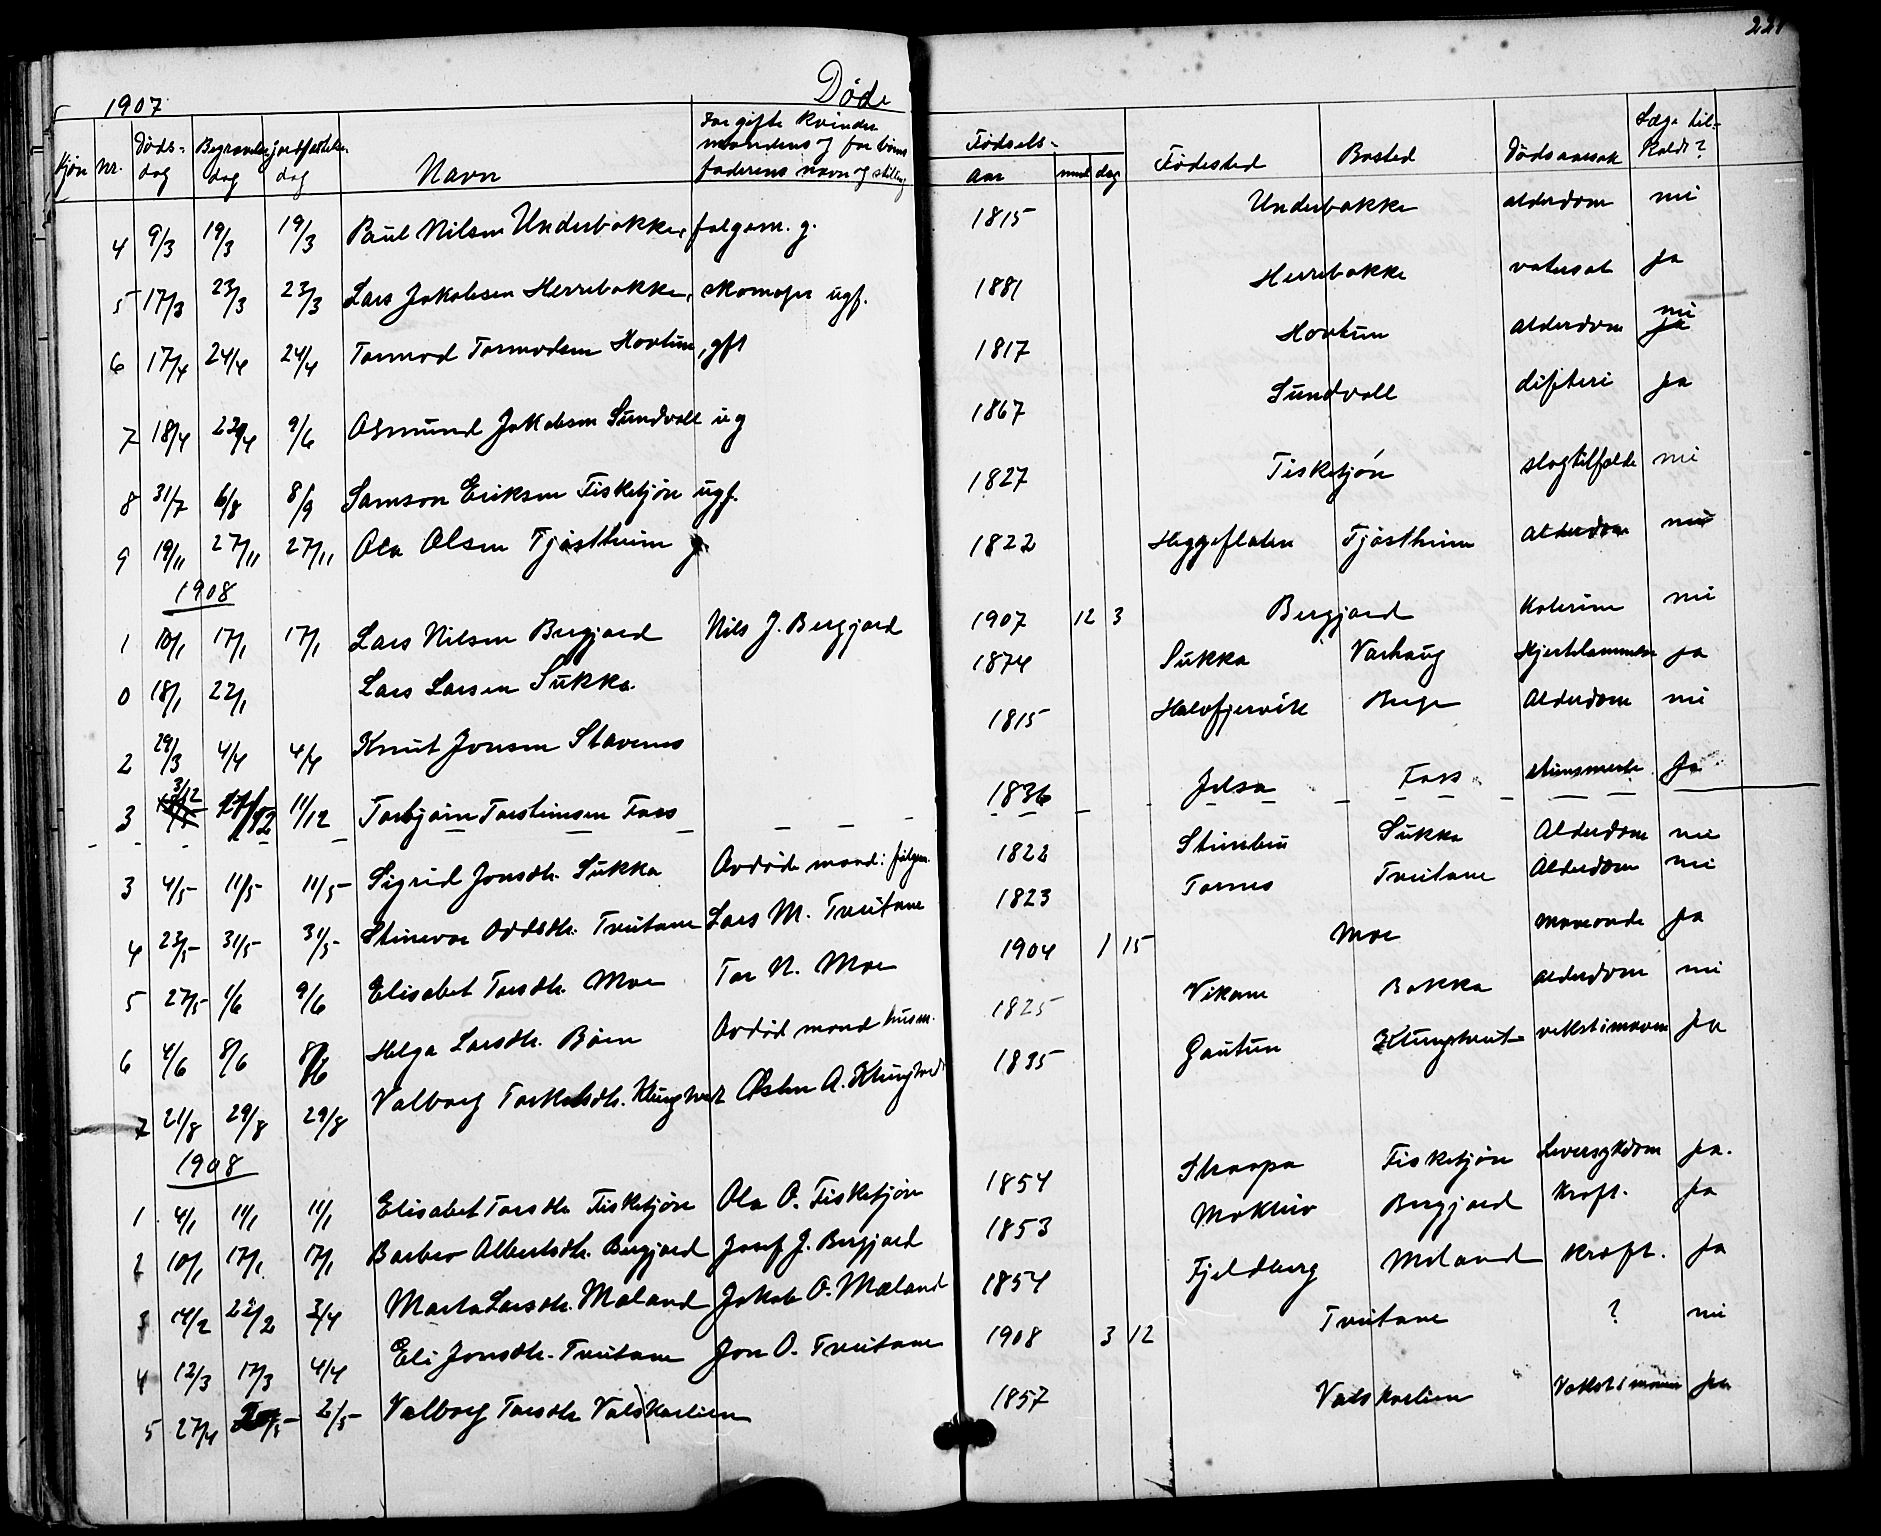 221
1907
Døde
Kjøn Nr. Døds-dag Begravelsesdag jordfæstelsesdag Navn For gifte kvinder mandens og for børn faderens navn og stilling Fødsels- aar mnd dag Fødested Bosted Dødsaarsak Læge tilkaldt?
4 9/3 19/3 19/3 Paul Nilsen Underbakke, folgem. g. 1815 Underbakke alderdom nei
5 17/3 23/3 23/3 Lars Jakobsen Herrebakke, skomager ugf. 1881 Herrebakke vatersot ja
6 17/4 24/4 24/4 Tormod Tormodsen Hovtun, gft 1817 Hovtun alderdom nei
7 18/4 9/6 Asmund Jakobsen Sundvoll ug 1867 Sundvoll difteri ja
8 31/7 6/8 8/9 Samson Eriksen Fisketjøn ugf. 1827 Fisketjøn slagtilfælde nei
9 19/11 27/11 27/11 Ola Olsen Tjøstheim g. 1822 Heggeflaten Tjøstheim alderdom nei
1908
1 10/1 17/1 17/1 Lars Nilsen Bergjord Nils J. Bergjord 1907 12 3 Bergjord nei
0 18/1 22/1 Lars Larsen Sukka. 1874 Sukka Varhaug Hjertelammelse ja
2 29/3 4/4 4/4 Knut Jonsen Stavenes 1815 Berge Alderdom nei
3 3/12 11/12 Torbjørn Torsteinsen Foss 1836 Jelsa Foss ja
3 4/5 11/5 11/5 Sigrid Jonsdtr. Sukka Avdøde mand: folgem. 1822 Steinbru Sukka Alderdom nei
4 23/5 31/5 31/5 Stinevor Oddsdtr. Tveitane Lars M. Tveitane 1823 Tornes Tveitane Alderdom nei
5 27/5 1/6 9/6 Elisabet Torsdtr. Moe Tor N. Moe 1904 1 15 Moe maveonde ja
6 4/6 8/6 8/6 Helga Larsdtr. Bøen Avdød mand husm. 1825 Vikane Bakka alderdom nei
7 21/8 29/8 29/8 Valborg Torkelsdtr. Klungtveit Østen A. Klungtveit 1835 Gautun Klungtveit vekst i maven ja
1908
1 4/1 11/1 11/1 Elisabet Torsdtr. Fisketjøn Ola O. Fisketjøn 1854 Skarpa Fisketjøn Leversykdom ja.
2 10/1 17/1 17/1 Barbro Albertsdtr. Bergjord Josef J. Bergjord 1853 Bergjord kræft. ja
3 14/2 22/2 3/4 Marta Larsdtr. Mæland Jakob O. Mæland 1854 Fjeldberg Mæland kræft. ja
4 12/3 17/3 4/4 Eli Jonsdtr. Tveitane Jon O. Tveitane 1908 3 12 Tveitane ? nei
5 27/4 2/5 Valborg Torsdtr. Valskarlien 1857 Valskarlien Vekst i maven ja